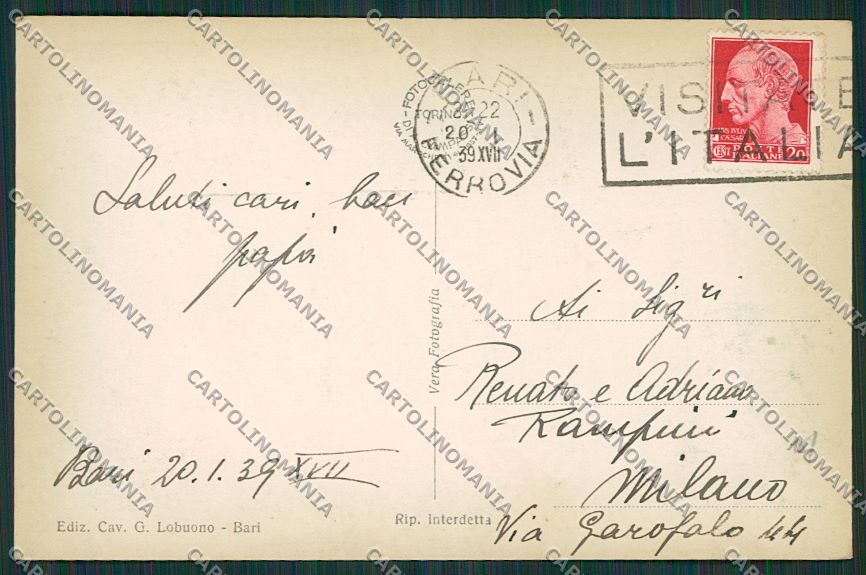 Saluti cari, baci
papà
Bari 20.1.39 XVII
Ediz. Cav. G. Lobuono - Bari
Vera Fotografia
Rip. interdetta
BARI
FERROVIA
22
20 I
39 XVII
TORINO
VISITATE
L'ITALIA
CENT 20
POSTE
ITALIANE
Ai Sigri
Renato e Adriano
Rampini
Milano
Via Garofalo 44
CARTOLINOMANIA